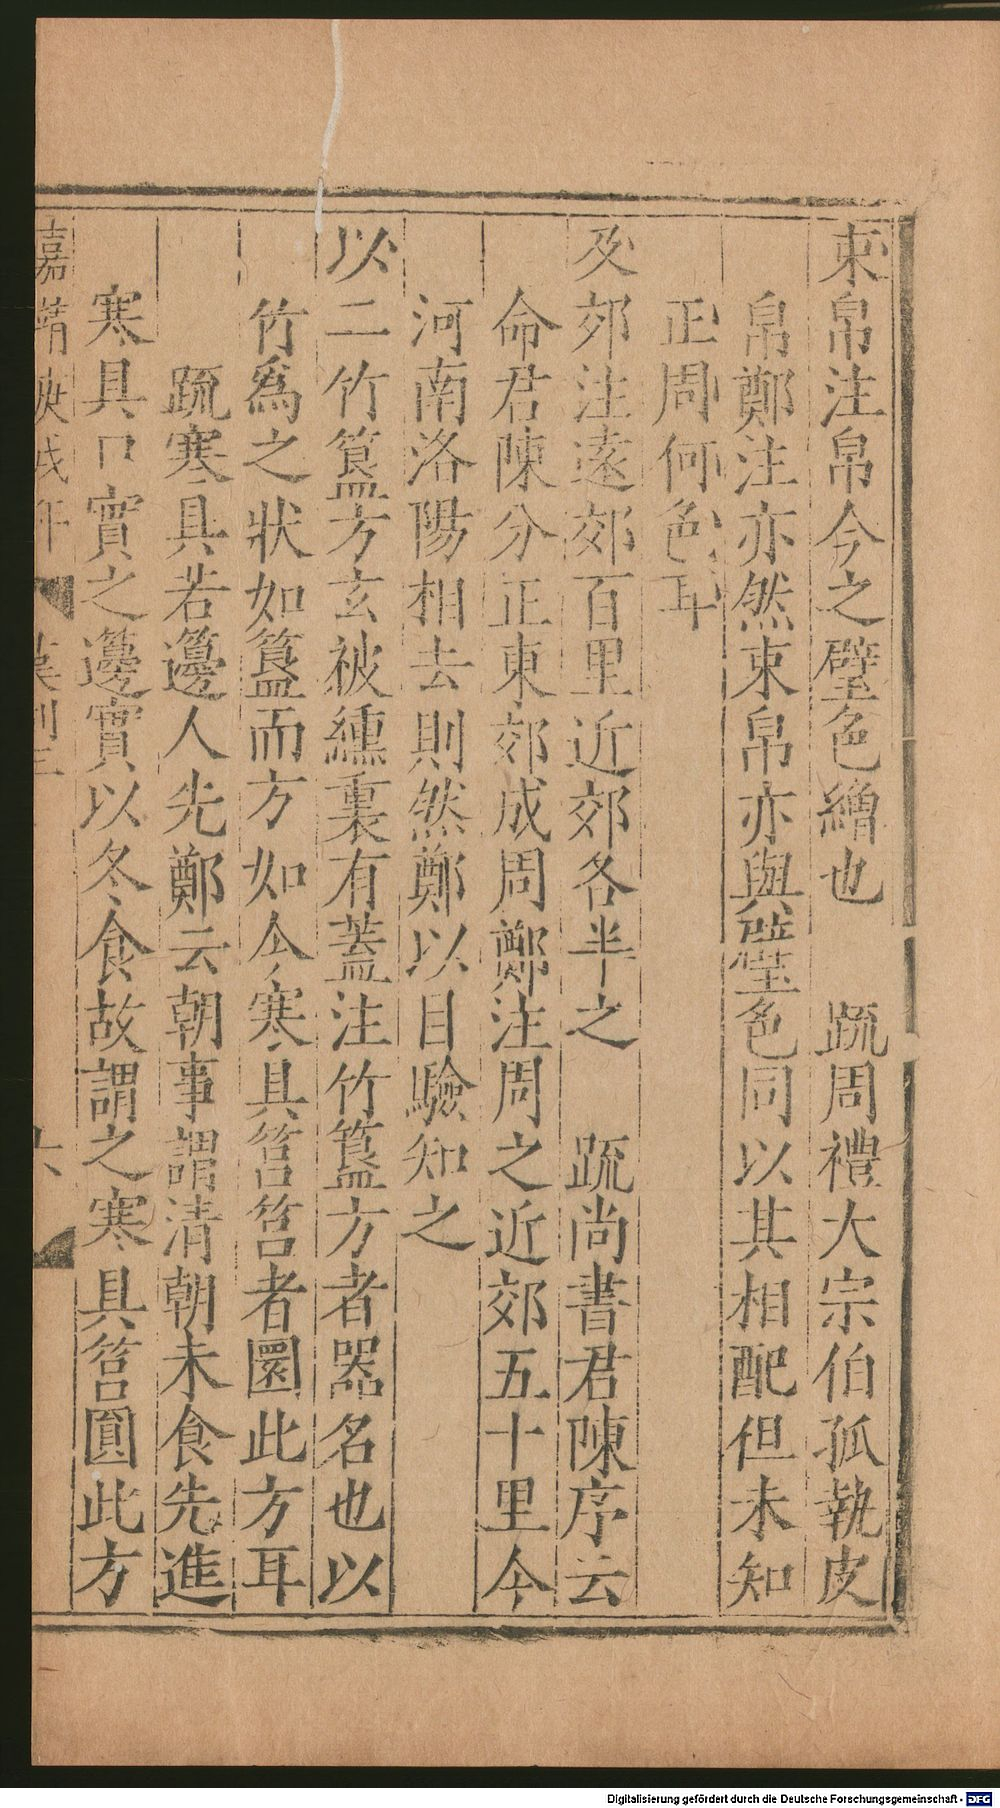 束帛注帛今之璧色繒也　疏周禮大宗伯孤執皮
帛鄭注亦然束帛亦與璧色同以其相配但未知
正周何色耳
及郊注遠郊百里近郊各半之　疏尚書君陳序云
命君陳分正東郊成周鄭注周之近郊五十里今
河南洛陽相去則然鄭以目驗知之
以二竹簋方玄被纁裏有蓋注竹簋方者器名也以
竹爲之狀如簋而方如今寒具筥筥者圜此方耳
疏寒具若籩人先鄭云朝事謂清朝未食先進
寒具口實之籩實以冬食故謂之寒具筥圓此方
嘉靖庚戌年
六
Digitalisierung gefördert durch die Deutsche Forschungsgemeinschaft - DFG